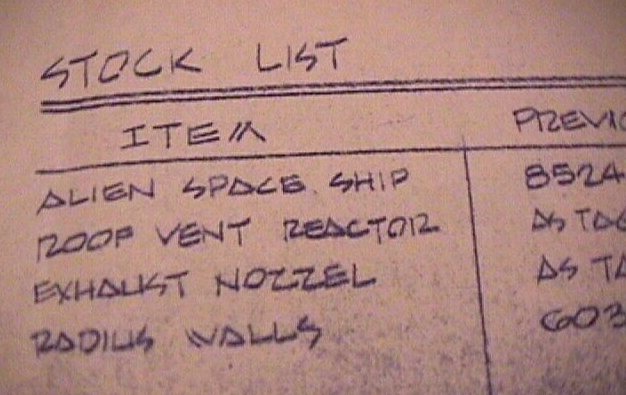 STOCK LIST
ITEM PREVIO
ALIEN SPACE SHIP 8524
ROOF VENT REACTOR AS TAG
EXHAUST NOZZEL AS TA
RADIUS WALLS 603